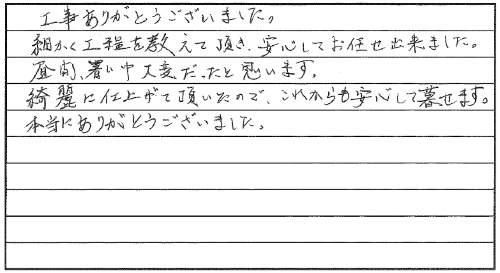 工事ありがとうございました。
細かく工程を教えて頂き、安心してお任せ出来ました。
昼間、暑い中大変だったと思います。
綺麗に仕上がて頂いたので、これからも安心して暮せます。
本当にありがとうございました。